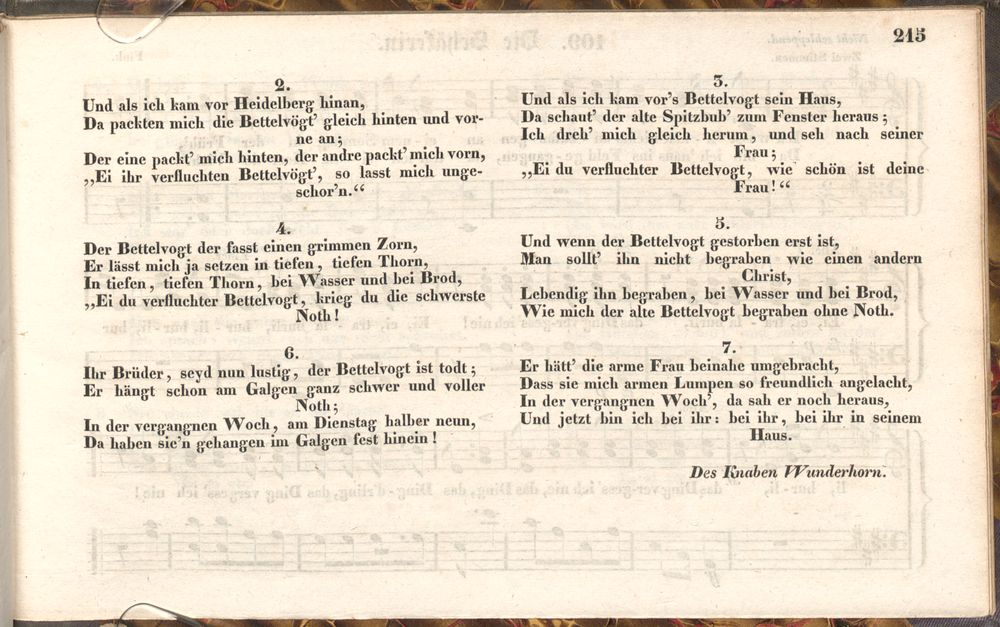 215
2.
Und als ich kam vor Heidelberg hinan,
Da packten mich die Bettelvögt' gleich hinten und vor-
ne an;
Der eine packt' mich hinten, der andre packt' mich vorn,
„Ei ihr verfluchten Bettelvögt', so lasst mich unge-
schor'n.“
3.
Und als ich kam vor's Bettelvogt sein Haus,
Da schaut' der alte Spitzbub' zum Fenster heraus;
Ich dreh' mich gleich herum, und seh nach seiner
Frau;
„Ei du verfluchter Bettelvogt, wie schön ist deine
Frau!“
4.
Der Bettelvogt der fasst einen grimmen Zorn,
Er lässt mich ja setzen in tiefen, tiefen Thorn,
In tiefen, tiefen Thorn, bei Wasser und bei Brod,
„Ei du verfluchter Bettelvogt, krieg du die schwerste
Noth!
5.
Und wenn der Bettelvogt gestorben erst ist,
Man sollt' ihn nicht begraben wie einen andern
Christ,
Lebendig ihn begraben, bei Wasser und bei Brod,
Wie mich der alte Bettelvogt begraben ohne Noth.
6.
Ihr Brüder, seyd nun lustig, der Bettelvogt ist todt;
Er hängt schon am Galgen ganz schwer und voller
Noth;
In der vergangnen Woch, am Dienstag halber neun,
Da haben sie'n gehangen im Galgen fest hinein!
7.
Er hätt' die arme Frau beinahe umgebracht,
Dass sie mich armen Lumpen so freundlich angelacht,
In der vergangnen Woch', da sah er noch heraus,
Und jetzt bin ich bei ihr: bei ihr, bei ihr in seinem
Haus.
Des Knaben Wunderhorn.